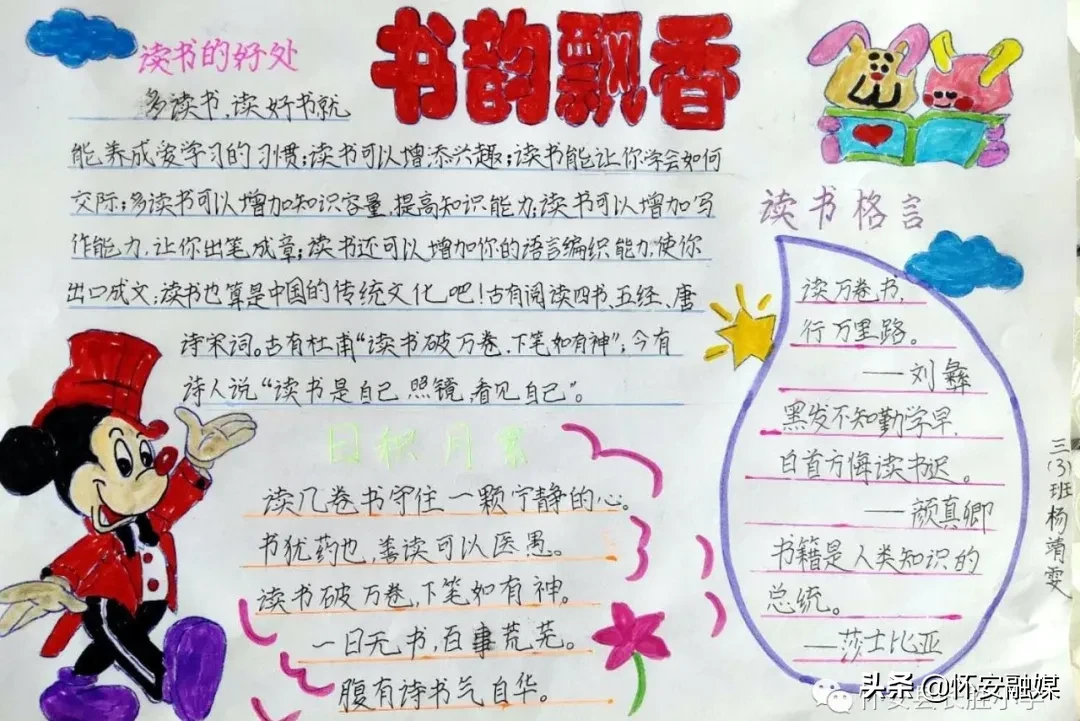 书韵飘香
读书的好处
多读书、读好书就
能养成爱学习的习惯;读书可以增添兴趣;读书能让你学会如何
交际;多读书可以增加知识容量,提高知识能力;读书可以增加写
作能力,让你出笔成章;读书还可以增加你的语言编织能力,使你
出口成文;读书也算是中国的传统文化吧!古有阅读四书、五经、唐
诗宋词。古有杜甫“读书破万卷,下笔如有神”;今有
诗人说“读书是自己照镜,看见自己”。
日积月累
读几卷书守住一颗宁静的心。
书犹药也,善读可以医愚。
读书破万卷,下笔如有神。
一日无书,百事荒芜。
腹有诗书气自华。
读书格言
读万卷书,
行万里路。
——刘彝
黑发不知勤学早,
白首方悔读书迟。
——颜真卿
书籍是人类知识的
总统。
——莎士比亚
三(3)班杨靖雯
头条 @怀安融媒